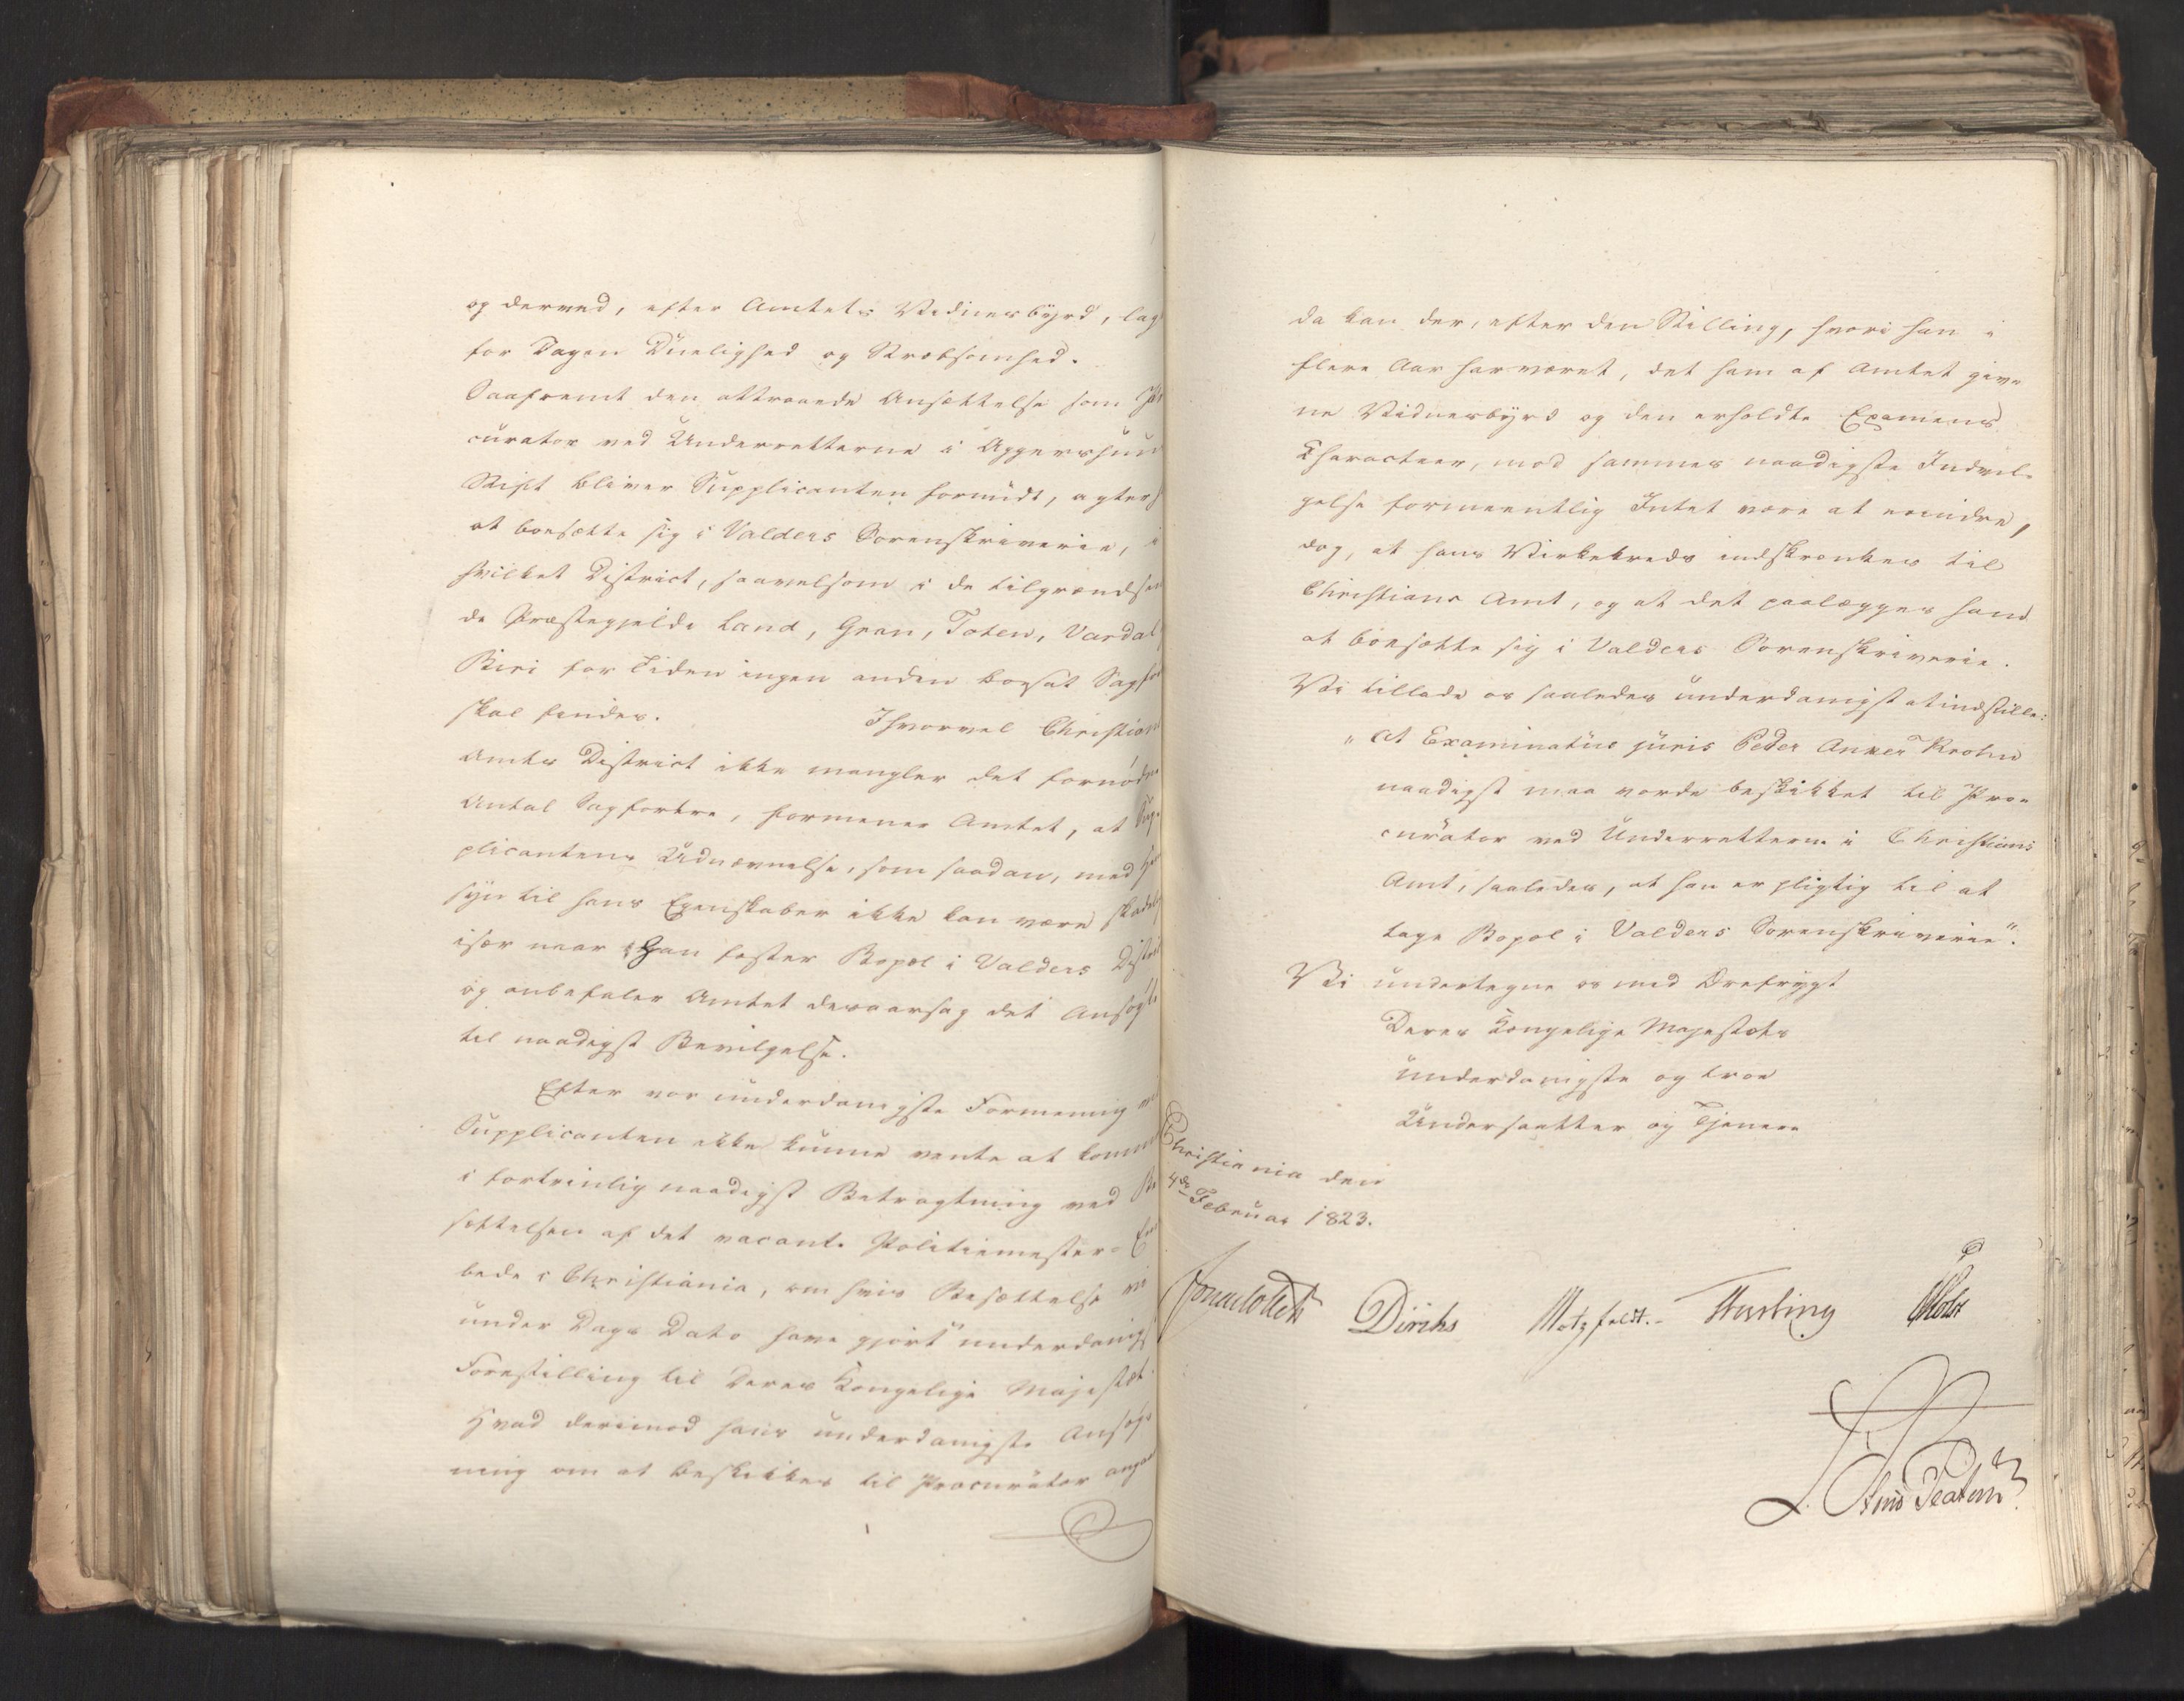 og derved, efter Amtets Vidnesbyrd, lagt
for Dagen Duelighed og Stræbsomhed.
Saafremt den attraaede Ansættelse som Pro
curator ved Underretterne i Aggershuus
Stift bliver Supplicanten forundt, agter han
at boesætte sig i Valders Sorenskriverie, i
hvilket District, saavelsom i de tilgrændsen
de Præstegjelde Land, Gran, Toten, Vardal
Biri for Tiden ingen anden boesat Sagfører
skal findes. Ihvorvel Christians
Amts District ikke mangler det fornødne
Antal Sagførere, formener Amtet, at Sup-
plicantens Udnævnelse, som saadan, med Hen
syn til hans Egenskaber ikke kan være skadelig
især naar Han fæster Bopæl i Valders District
og anbefaler Amtet desaarsag det Ansøgte
til naadigst Bevilgelse.
Efter vor underdanigste Formening vil
Supplicanten ikke kunne vente at komme
i fortrinlig naadigst Betragtning ved Be
sættelsen af det vacante Politiemester- Em
bede i Christiania, om hvis Besættelse vi
under Dags Dato have gjort underdanigst
Forestilling til Deres Kongelige Majestæt.
Hvad derimod hans underdanigste Ansøg
ning om at beskikkes til Procurator angaaer
da kan der, efter den Stilling, hvori han i
flere Aar har været, det ham af Amtet givne
ne Vidnesbyrd og den erholdte Examens
Characteer, mod sammes naadigste Indvil-
gelse formeentlig Intet være at erindre,
dog, at hans Virkekreds indskrænkes til
Christians Amt, og at det paalægges ham
at boesætte sig i Valders Sorenskriverie.
Vi tillade os saaledes underdanigst at indstille:
"At Examinatus juris Peder Anker Krohn
naadigst maa vorde beskikket til Pro-
curator ved Underretterne i Christians
Amt, saaledes, at han er pligtig til at
tage Bopæl i Valders Sorenskriverie".
Vi undertegne os med Ærefrygt
Deres Kongelige Majestæts
underdanigste og troe
Undersaatter og Tjenere
Christiania den
4de Februar 1823.
Diriks Motzfeldt.- Holst